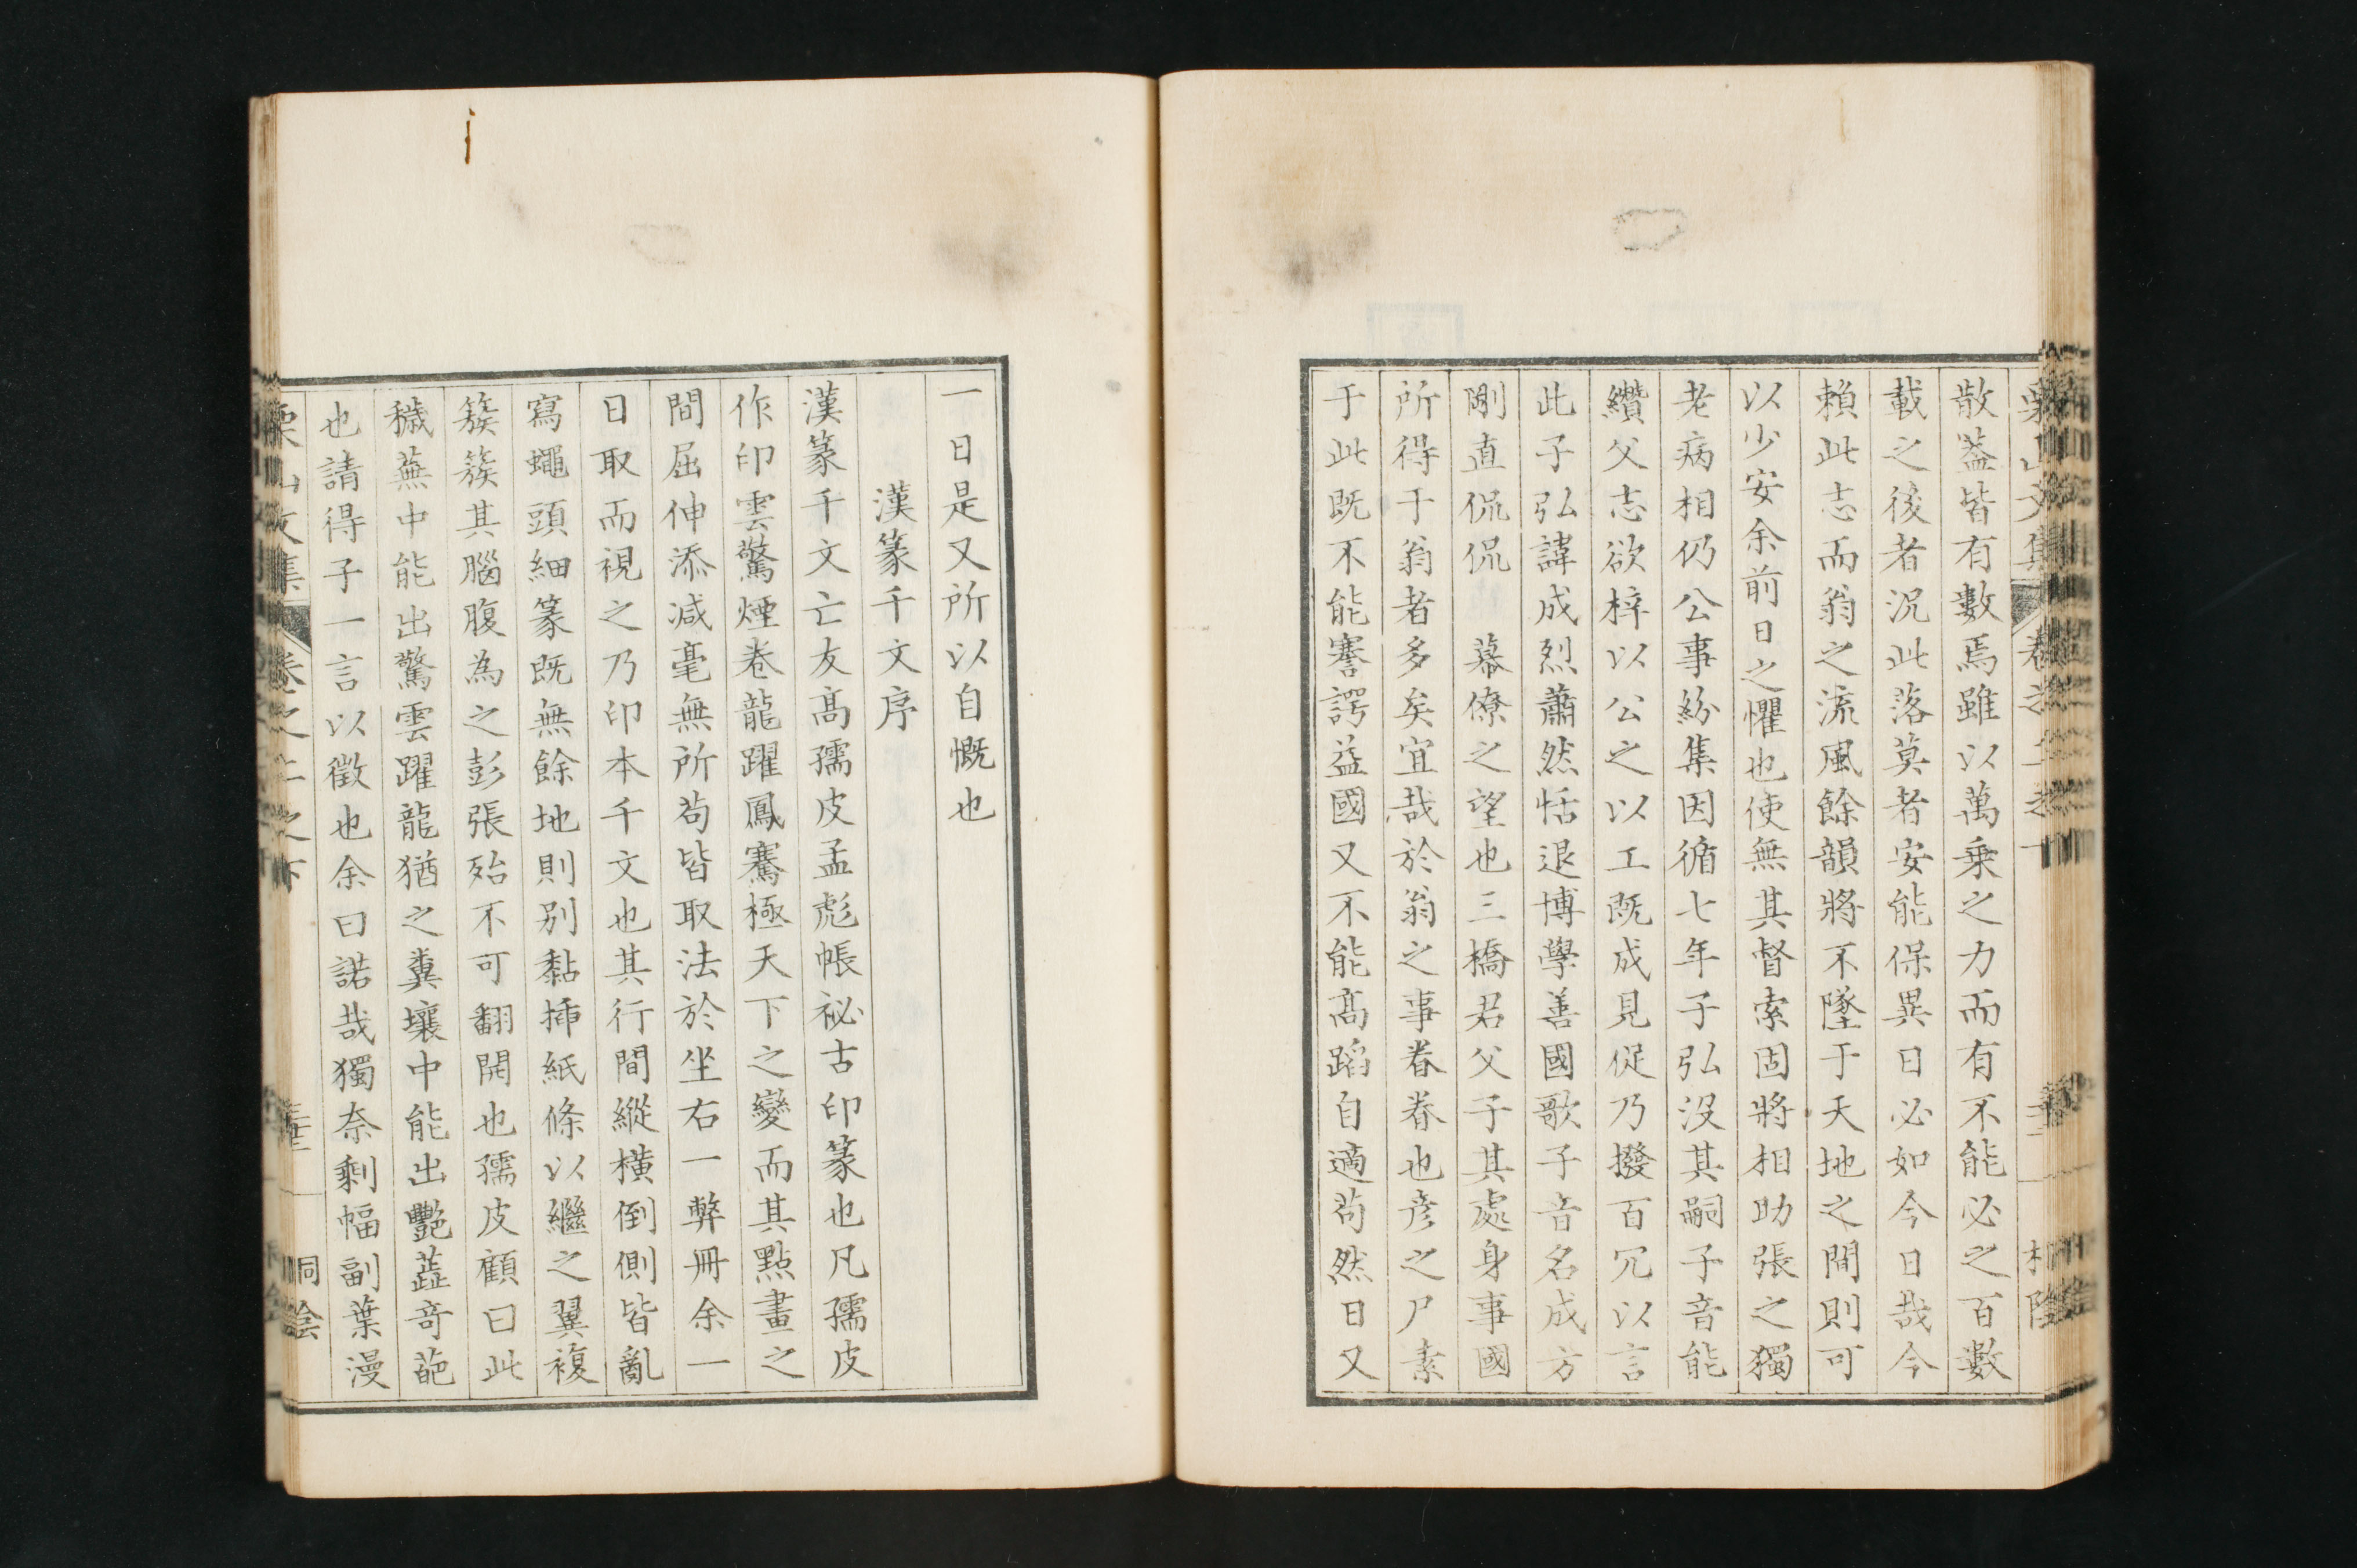 散葢皆有數焉雖以萬乗之力而有不能必之百數
載之後者況此落莫者安能保異日必如今日哉今
賴此志而翁之流風餘韻將不墜于天地之間則可
以少安余前日之懼也使無其督索固將相助張之獨
老病相仍公事紛集因循七年子弘没其嗣子音能
纘父志欲梓以公之以工既成見促乃撥百冗以言
此子弘諱成烈蕭然恬退博學善國歌子音名成方
剛直侃侃 幕僚之望也三橋君父子其處身事國
所得于翁者多矣宜哉於翁之事眷眷也彦之尸素
于此既不能謇諤益國又不能髙蹈自適苟然日又
一日是又所以自慨也
漢篆千文序
漢篆千文亡友髙孺皮孟彪帳祕古印篆也凡孺皮
作印雲驚煙卷龍躍鳳騫極天下之變而其點畫之
間屈伸添減毫無所苟皆取法於坐右一弊冊余一
日取而視之乃印本千文也其行間縱横倒側皆亂
寫蠅頭細篆既無餘地則别黏挿紙條以繼之翼複
簇簇其腦腹為之彭張殆不可翻開也孺皮顧曰此
穢蕪中能出驚雲躍龍猶之糞壤中能出艷蕋竒葩
也請得子一言以徵也余曰諾哉獨奈剩幅副葉漫
栗山文集 卷之二之下